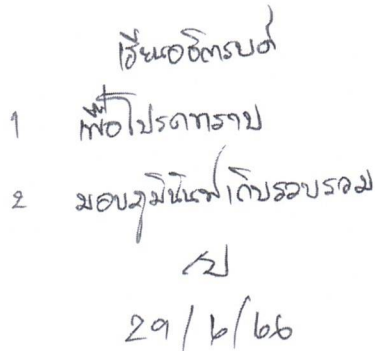 เรียนอธิการบดี
1 เพื่อโปรดทราบ
2 มอบภูมินันท์เก็บรวบรวม
29/6/66